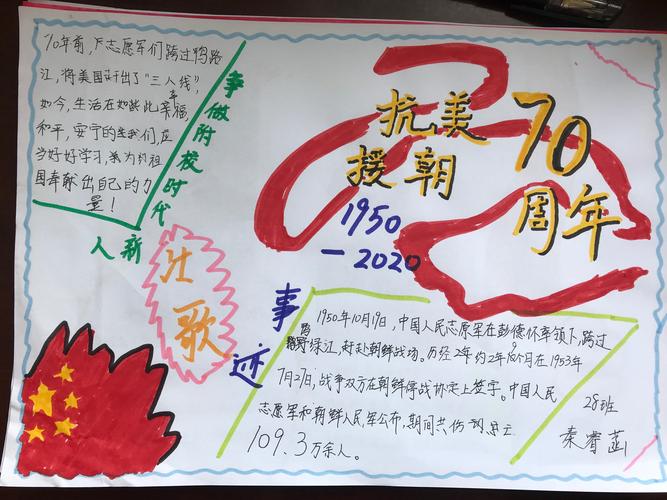 70年前，志愿军们跨过鸭路
江，将美国赶出了“三八线”，
如今，生活在如此幸福，
和平，安宁的我们，应
当好好学习，为祖
国奉献出自己的力
量！
争做附校时代
新人
抗美
援朝
70
周年
1950
－2020
壮歌
事迹
1950年10月19日，中国人民志愿军在彭德怀率领下，跨过
绿江，赶赴朝鲜战场。历经2年约2年9个月在1953年
7月27日，战争双方在朝鲜停战协定上签字。中国人民
志愿军和朝鲜人民军公布，期间共伤
109.3万余人。
28班
秦睿菡